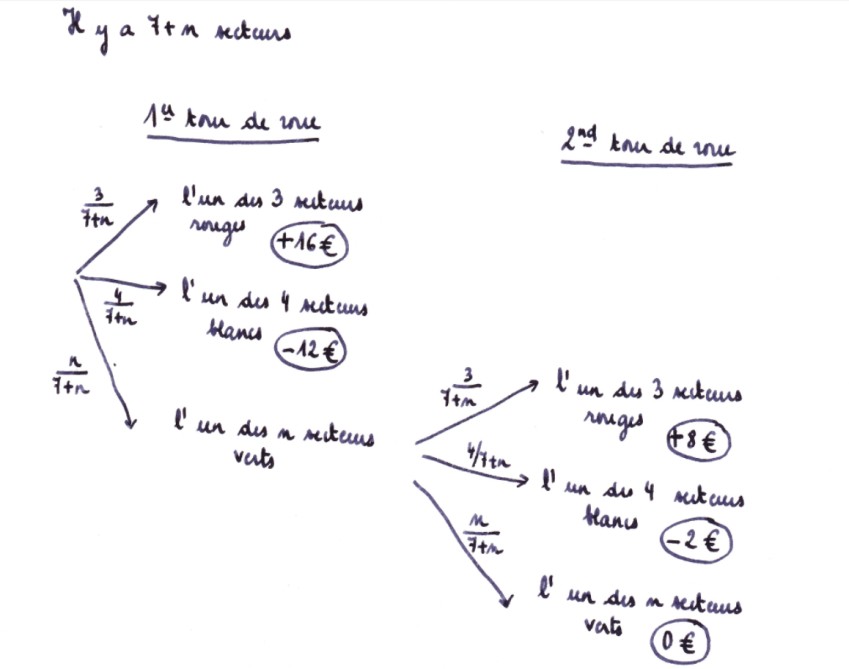 Il y a 7+n secteurs
1er tour de roue
2nd tour de roue
3/7+n
l'un des 3 secteurs
rouges +16€
4/7+n
l'un des 4 secteurs
blancs -12€
n/7+n
l'un des n secteurs
verts
3/7+n
l'un des 3 secteurs
rouges +8€
4/7+n
l'un des 4 secteurs
blancs -2€
n/7+n
l'un des n secteurs
verts 0€